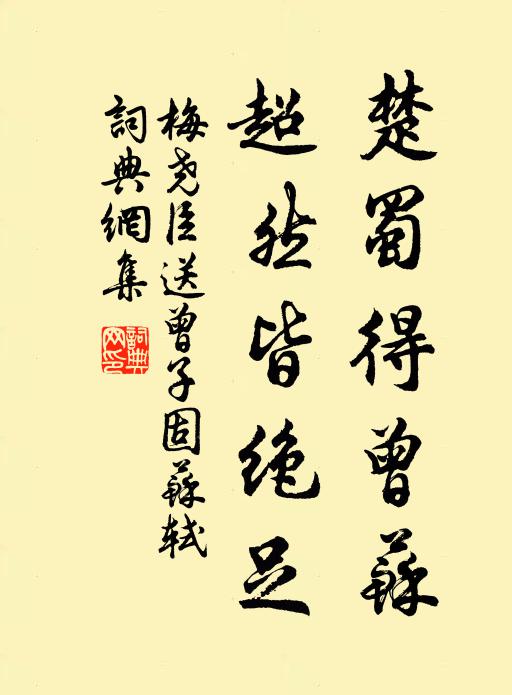 楚蜀得曾蘇
超然皆絶足
梅尧臣送曾子固蘇軾
詞典網集
詞典
网印